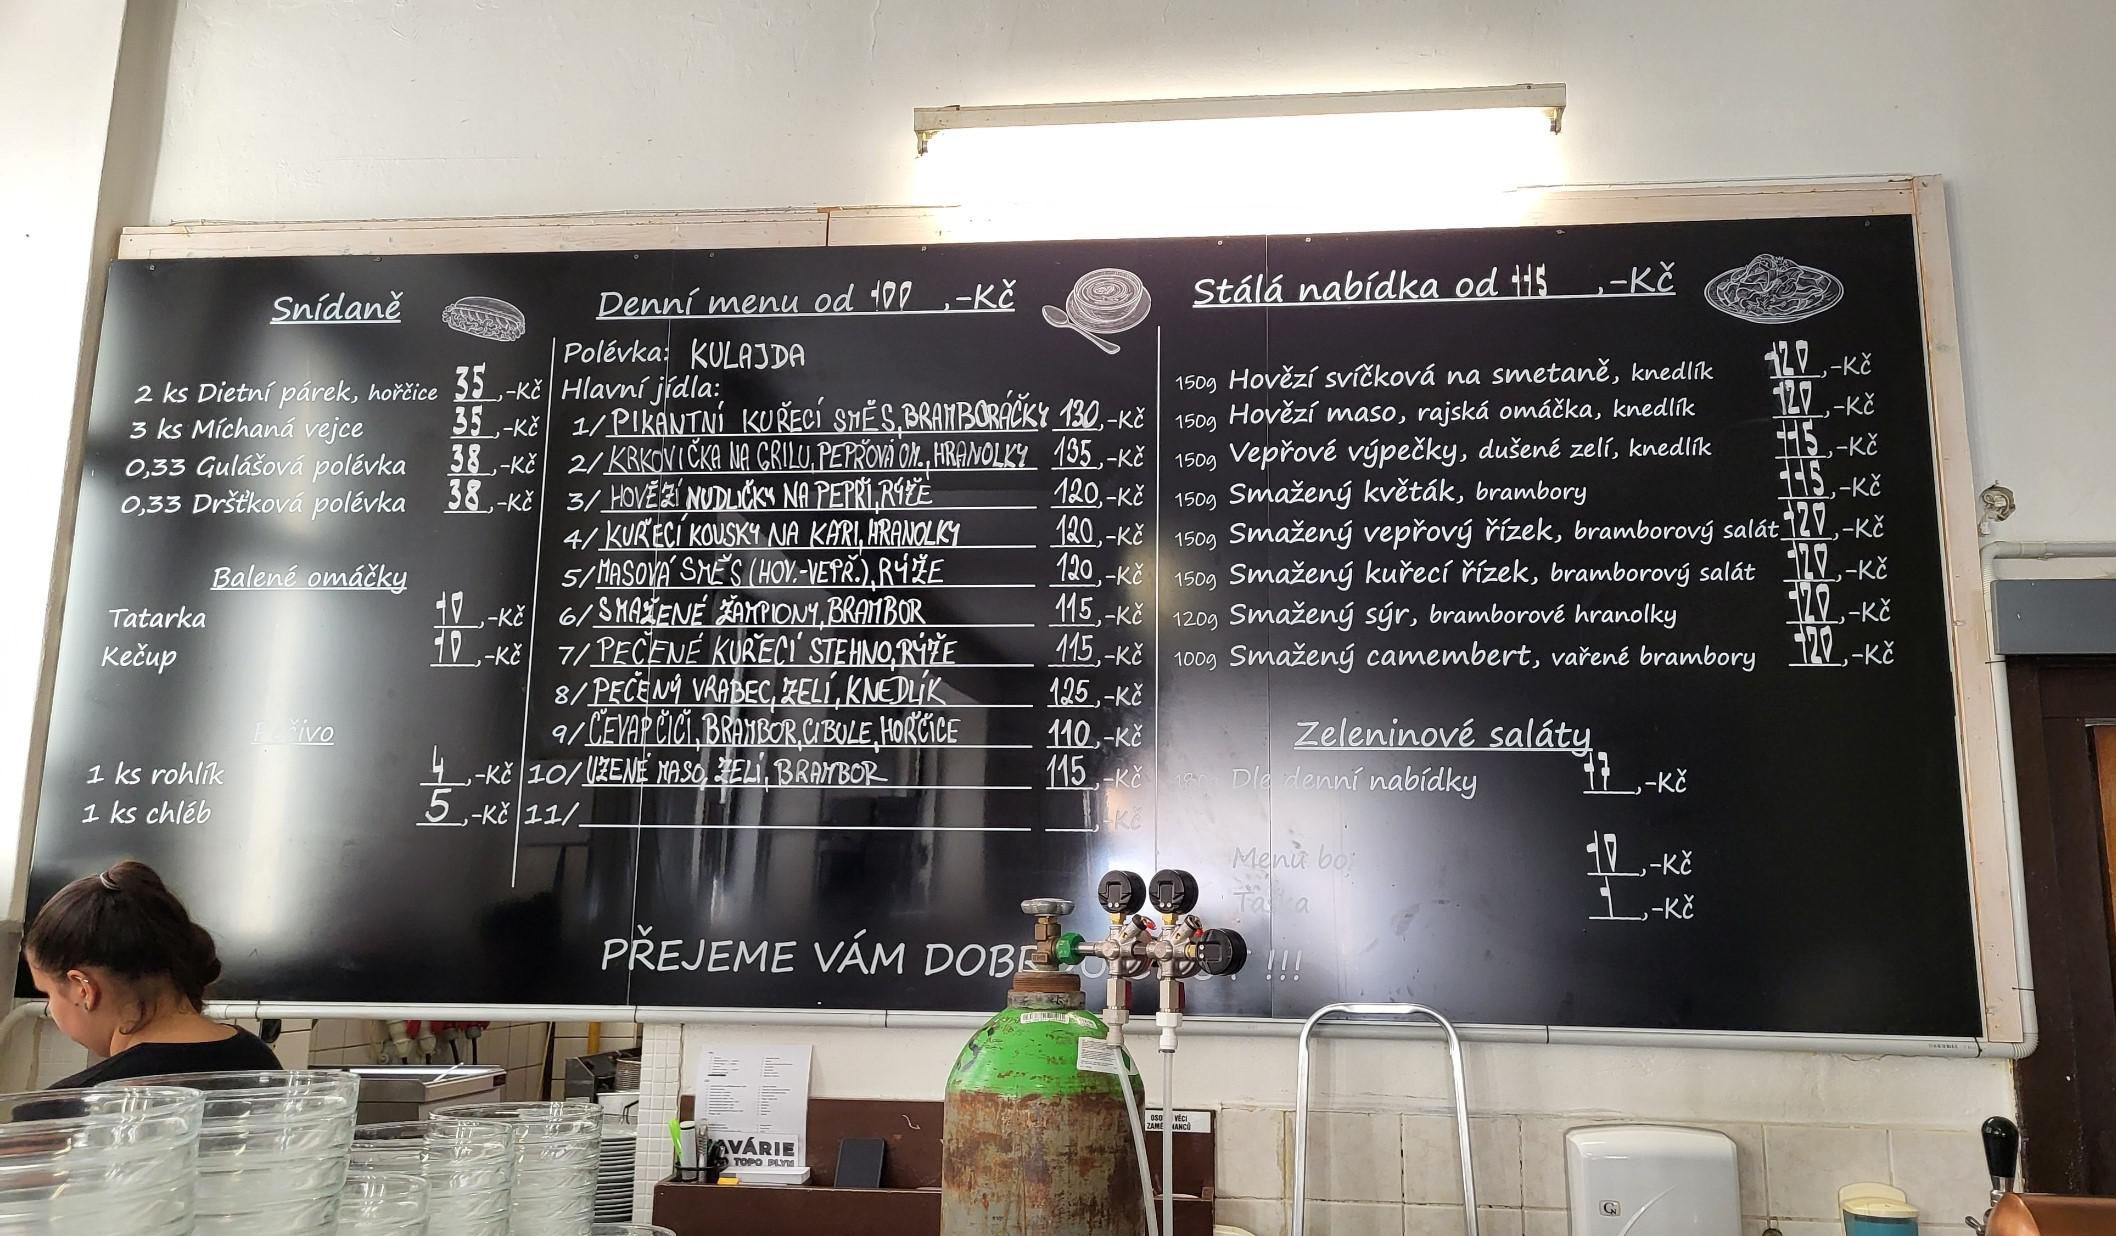 Snídaně
2 ks Dietní párek, hořčice 35,-Kč
3 ks Míchaná vejce 35,-Kč
0,33 Gulášová polévka 38,-Kč
0,33 Dršťková polévka 38,-Kč
Balené omáčky
Tatarka 10,-Kč
Kečup 10,-Kč
1 ks rohlík 4,-Kč
1 ks chléb 5,-Kč
Denní menu od 100,-Kč
Polévka: KULAJDA
Hlavní jídla:
1/ PIKANTNÍ KUŘECÍ SMĚS, BRAMBORÁČKY 130,-Kč
2/ KRKOVIČKA NA GRILU, PEPŘOVÁ OM., HRANOLKY 135,-Kč
3/ HOVĚZÍ NUDLIČKY NA PEPŘI, RÝŽE 120,-Kč
4/ KUŘECÍ KOUSKY NA KARI, HRANOLKY 120,-Kč
5/ MASOVÁ SMĚS (HOV.-VEPŘ.), RÝŽE 120,-Kč
6/ SMAŽENÉ ŽAMPIONY, BRAMBOR 115,-Kč
7/ PEČENÉ KUŘECÍ STEHNO, RÝŽE 115,-Kč
8/ PEČENÝ VRABEC, ZELÍ, KNEDLÍK 125,-Kč
9/ ČEVAPČIČI, BRAMBOR, CIBULE, HOŘČICE 110,-Kč
10/ UZENÉ MASO, ZELÍ, BRAMBOR 115,-Kč
11/ ,-Kč
Stálá nabídka od 115,-Kč
150g Hovězí svíčková na smetaně, knedlík 120,-Kč
150g Hovězí maso, rajská omáčka, knedlík 120,-Kč
150g Vepřové výpečky, dušené zelí, knedlík 115,-Kč
150g Smažený květák, brambory 115,-Kč
150g Smažený vepřový řízek, bramborový salát 120,-Kč
150g Smažený kuřecí řízek, bramborový salát 120,-Kč
120g Smažený sýr, bramborové hranolky 120,-Kč
100g Smažený camembert, vařené brambory 120,-Kč
Zeleninové saláty
180g Dle denní nabídky 17,-Kč
Menu 10,-Kč
Taška 1,-Kč
PŘEJEME VÁM !!!
TOPO PLYN